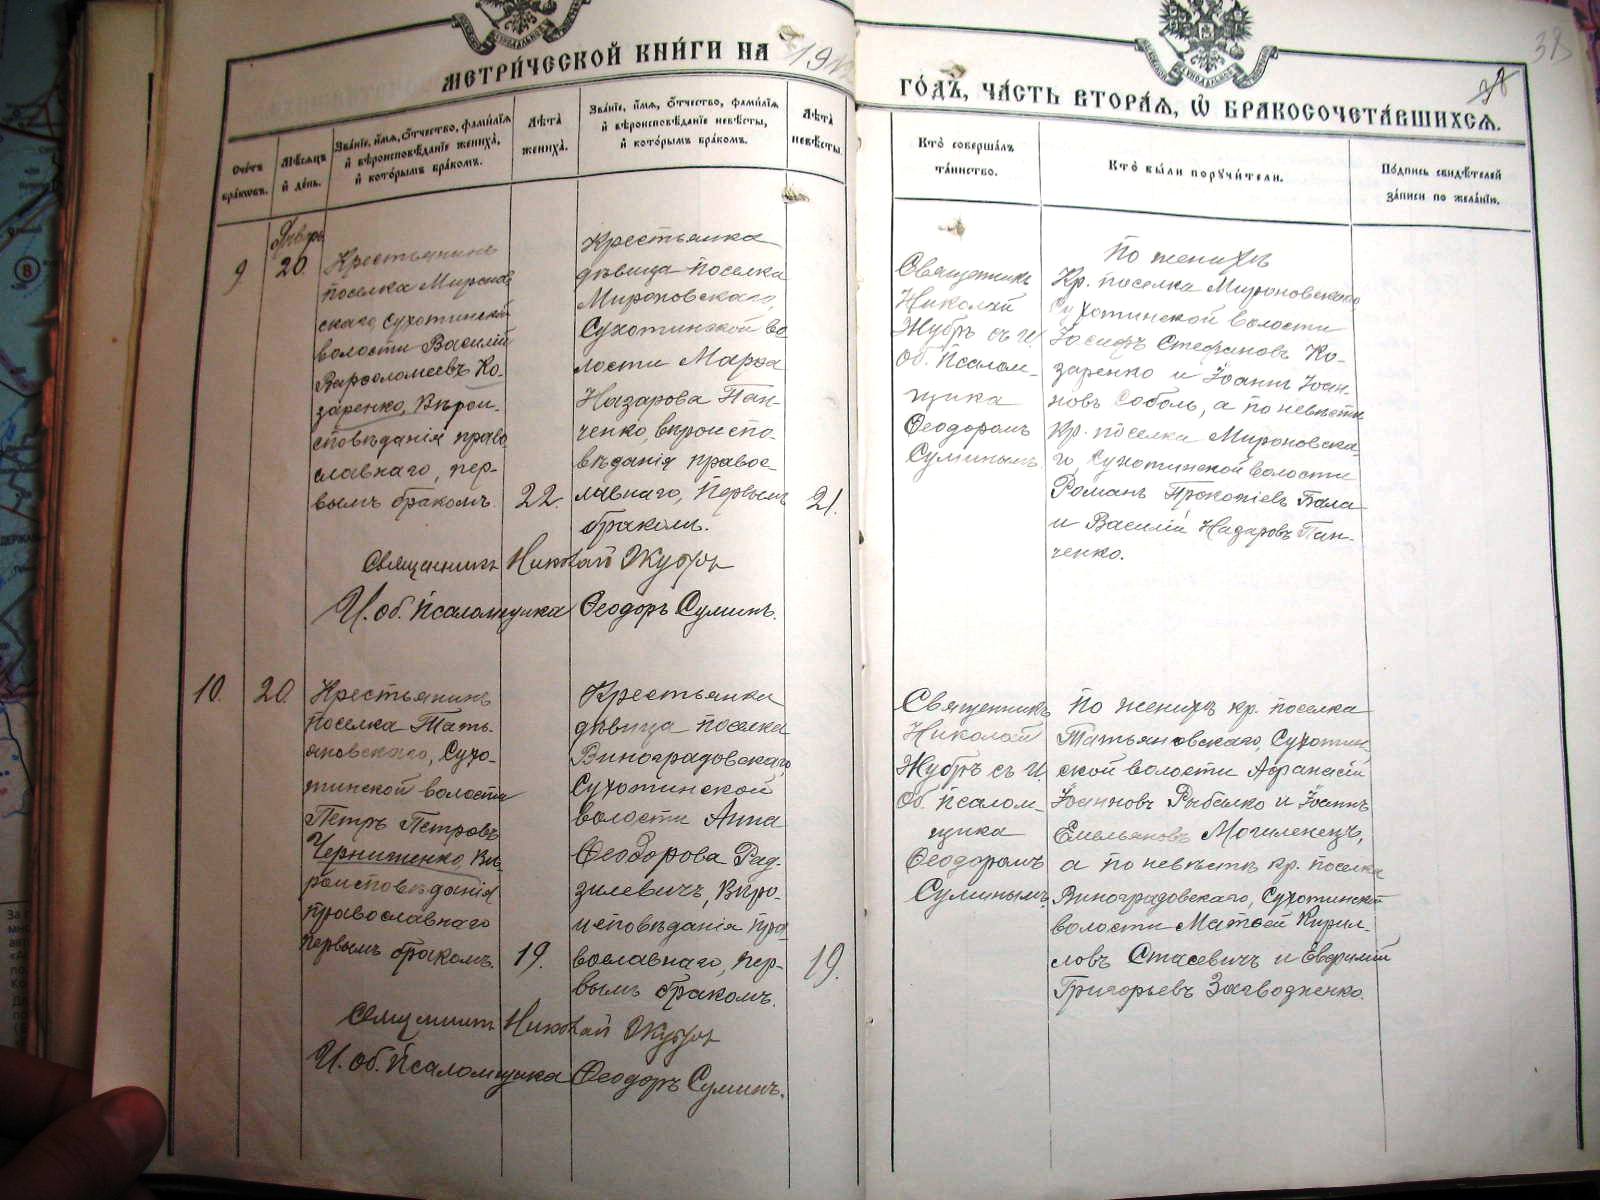 МЕТРИ́ЧЕСКОЙ КНИ́ГИ НА 191
ГО́ДЪ, ЧА́СТЬ ВТОРА́Я, Ѡ БРАКОСОЧЕТА́ВШИХСЯ.
38
Счетъ браковъ.
Мѣсяцъ и день.
Званіе, имя, отчество, фамилія и вѣроисповѣданіе жениха, и которымъ бракомъ.
Лѣта жениха.
Званіе, имя, отчество, фамилія и вѣроисповѣданіе невѣсты, и которымъ бракомъ.
Лѣта невѣсты.
Кто совершалъ таинство.
Кто были поручители.
Подпись свидѣтелей записи по желанію.
9
Январь
20.
Крестьянинъ
поселка Миронов-
скаго, Сухотинской
волости Василій
Варѳоломеевъ Ко-
заренко, Вѣрои-
сповѣданія право
славнаго, пер-
вымъ бракомъ.
22.
Крестьянка
дѣвица поселка
Мироновскаго,
Сухотинской во
лости Марѳа
Назарова Пан-
ченко, вѣроиспо-
вѣданія правос-
лавнаго, Первымъ
бракомъ.
21.
Священникъ
Николай
Жубръ съ И.
Об. Псалом-
щика
Ѳеодоромъ
Суминымъ.
По женихѣ
Кр. поселка Мироновскаго
Сухотинской волости
Іосифъ Стефановъ Ко-
заренко и Іоаннъ Іоан-
новъ Соболь, а по невѣстѣ
Кр. поселка Мироновска-
го, Сухотинской волости
Романъ Прокопіевъ Бала
и Василій Назаровъ Пан-
ченко.
Священникъ Николай Жубръ
И. Об. Псаломщика Ѳеодоръ Суминъ.
10.
20.
Крестьянинъ
поселка Тать-
яновскаго, Сухо-
тинской волости
Петръ Петровъ
Чернишенко, Вѣ-
роисповѣданія
православнаго
первымъ бракомъ.
19.
Крестьянка
дѣвица поселка
Виноградовскаго,
Сухотинской
волости Анна
Ѳеодорова Рад-
зилевичъ, Вѣро-
исповѣданія пра-
вославнаго, пер-
вымъ бракомъ.
19.
Священникъ
Николай
Жубръ съ И.
Об. Псалом-
щика
Ѳеодоромъ
Суминымъ.
По женихѣ кр. поселка
Татьяновскаго, Сухотин-
ской волости Аѳанасій
Іоанновъ Рыбалко и Іоаннъ
Емельяновъ Могиленецъ,
а по невѣстѣ кр. поселка
Виноградовскаго, Сухотинской
волости Матѳей Кирил-
ловъ Стасевичъ и Евфимій
Григорьевъ Загводженко.
Священникъ Николай Жубръ
И. Об. Псаломщика Ѳеодоръ Суминъ.